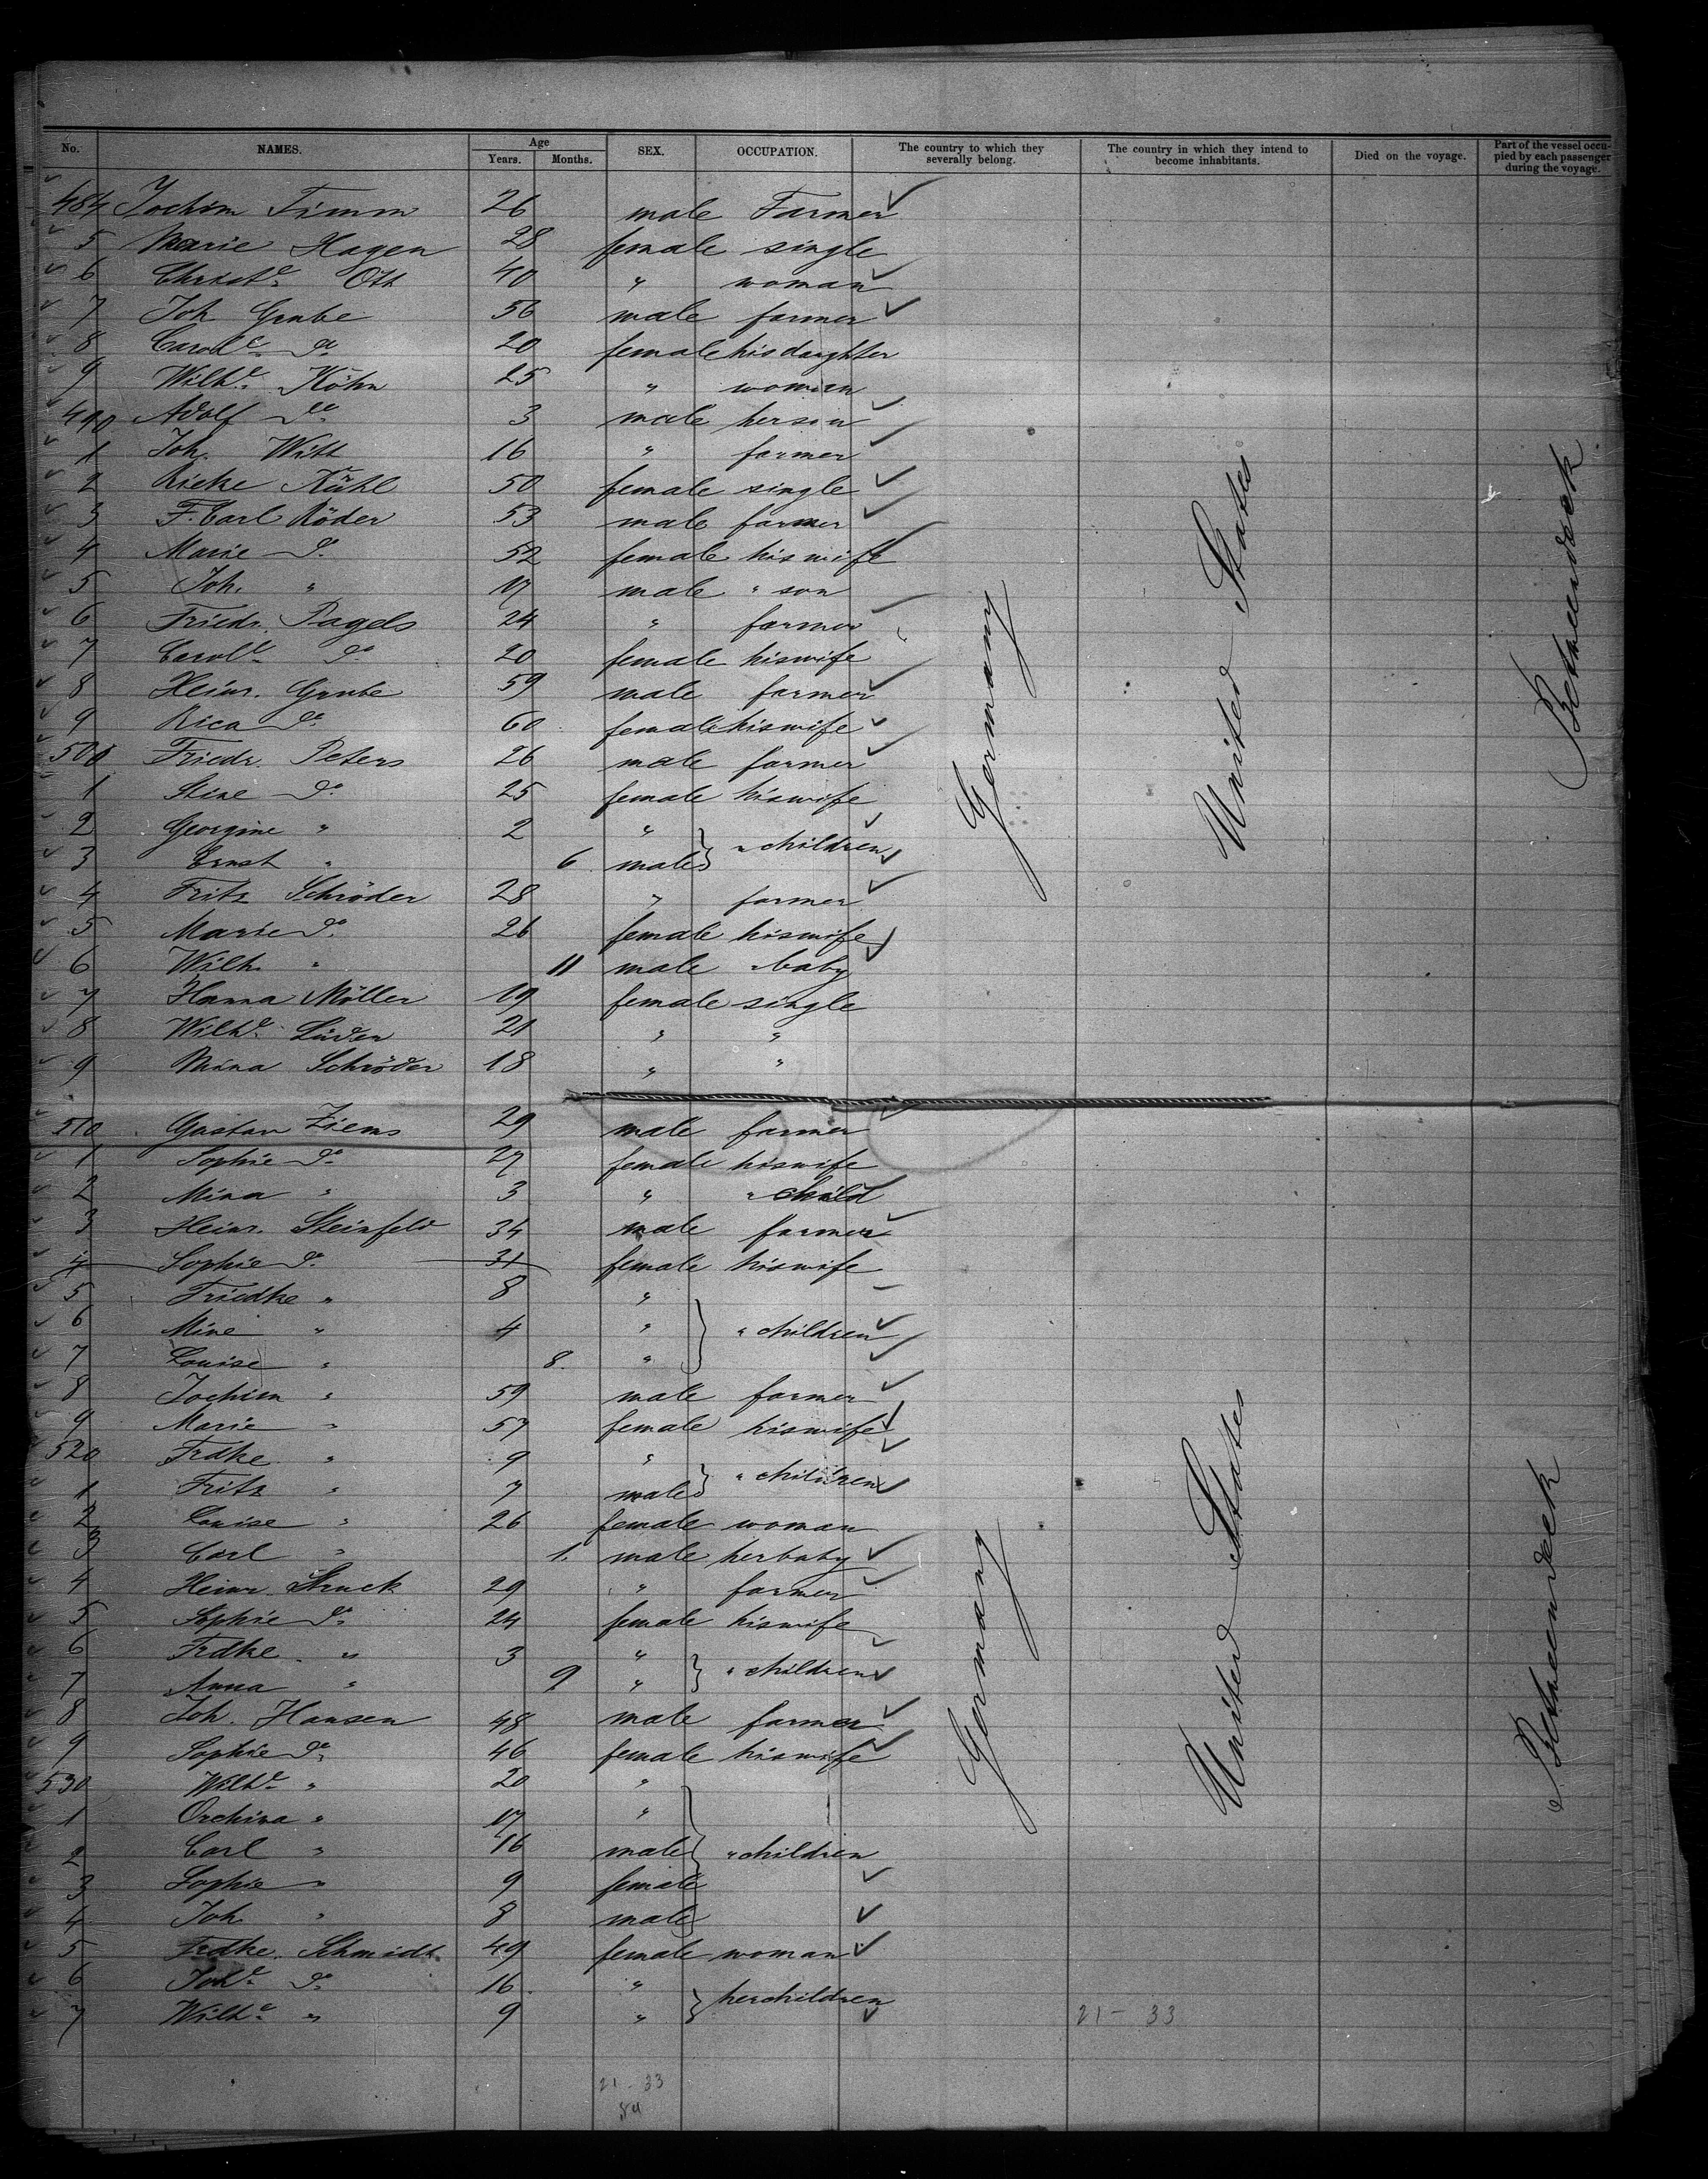 No. NAMES. Age Years. Months. SEX. OCCUPATION. The country to which they severally belong. The country in which they intend to become inhabitants. Died on the voyage. Part of the vessel occupied by each passenger during the voyage.
484 Jochim Timm 26 male Farmer
5 Marie Hagen 28 female single
6 Christe. Ott 40 " woman
7 Joh Grube 56 male farmer
8 Carole. do. 20 female his daughter
9 Wilhe. Köhn 25 " woman
490 Adolf do. 3 male her son
1 Joh. Witt 16 " farmer
2 Rieke Kühl 50 female single
3 F. Carl Röder 53 male farmer
4 Marie do. 52 female his wife
5 Joh. " 17 male " son
6 Friedr. Pagels 24 " farmer
7 Carole. do. 20 female his wife
8 Heinr. Grube 59 male farmer
9 Rica do. 60 female his wife
500 Friedr. Peters 26 male farmer
1 Stine do. 25 female his wife
2 Georgine " 2 " } " children
3 Ernst " 6 male }
4 Fritz Schröder 28 " farmer
5 Marie do. 26 female his wife
6 Wilh. " 11 male " baby
7 Hanna Möller 19 female single
8 Wilhe. Lüder 21 " "
9 Mina Schröder 18 " "
510 Gustav Ziems 29 male farmer
1 Sophie do. 27 female his wife
2 Mina " 3 " " child
3 Heinr. Steinfeld 34 male farmer
4 Sophie do. 31 female his wife
5 Friedke " 8 "
6 Mine " 4 " } " children
7 Louise " 8. " }
8 Jochim " 59 male farmer
9 Marie " 57 female his wife
520 Frdke. " 9 " } " children
1 Fritz " 7 male }
2 Louise " 26 female woman
3 Carl " 1. male her baby
4 Heinr. Struck 29 " farmer
5 Sophie do. 24 female his wife
6 Frdke. " 3 " } " children
7 Anna " 9 " }
8 Joh. Hansen 48 male farmer
9 Sophie do. 46 female his wife
530 Wilhe. " 20 "
1 " 17 "
2 Carl " 16 male } " children
3 Sophie " 9 female
4 Joh " 8 male
5 Frdke. Schmidt 49 female woman
6 Johe. do. 16 " } her children
7 Wilhe. " 9 " }
Germany
United States
Betweendeck
Germany
United States
Betweendeck
21 - 33
21 - 33